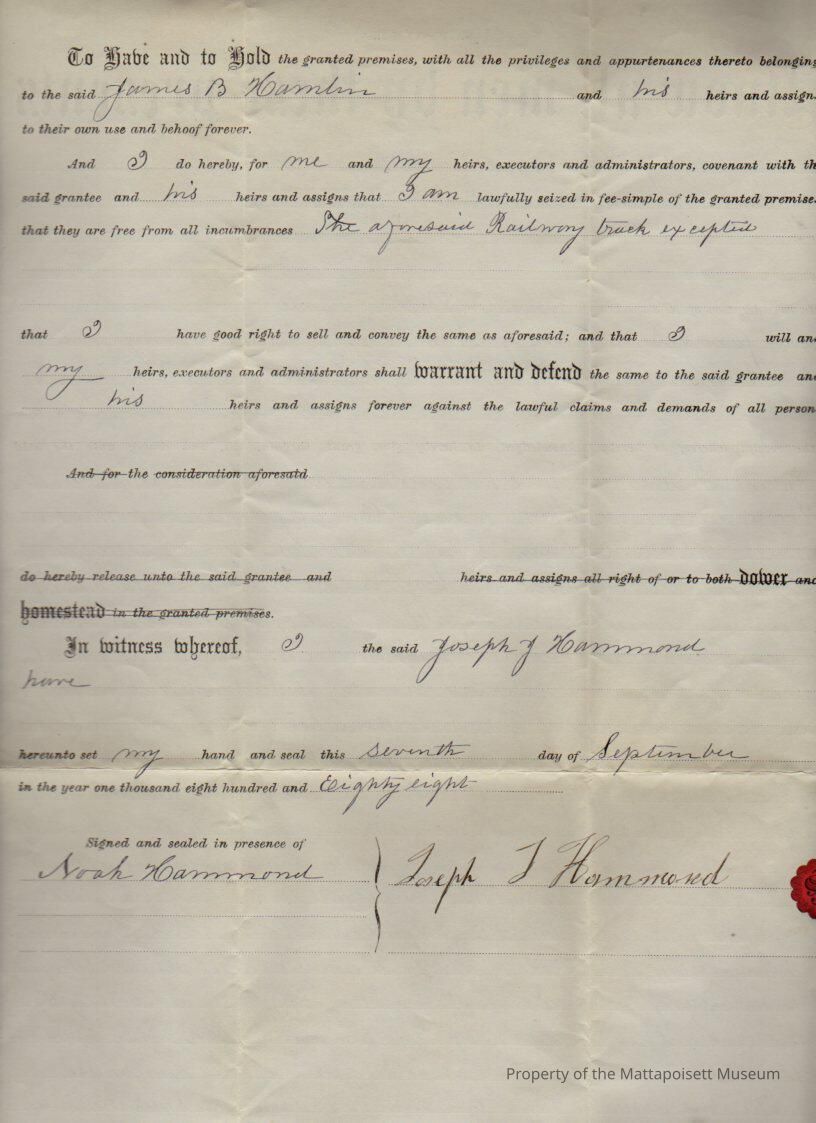 To Have and to Hold the granted premises, with all the privileges and appurtenances thereto belonging
to the said James B Hamlin and his heirs and assigns
to their own use and behoof forever.
And I do hereby, for me and my heirs, executors and administrators, covenant with th
said grantee and his heirs and assigns that I am lawfully seized in fee-simple of the granted premises
that they are free from all incumbrances The aforesaid Railway track excepted
that I have good right to sell and convey the same as aforesaid; and that I will and
my heirs, executors and administrators shall warrant and defend the same to the said grantee and
his heirs and assigns forever against the lawful claims and demands of all person
And for the consideration aforesaid
do hereby release unto the said grantee and heirs and assigns all right of or to both dower and
homestead in the granted premises.
In witness whereof, I the said Joseph J Hammond
have
hereunto set my hand and seal this seventh day of September
in the year one thousand eight hundred and Eighty eight
Signed and sealed in presence of
Noah Hammond Joseph J Hammond
Property of the Mattapoisett Museum